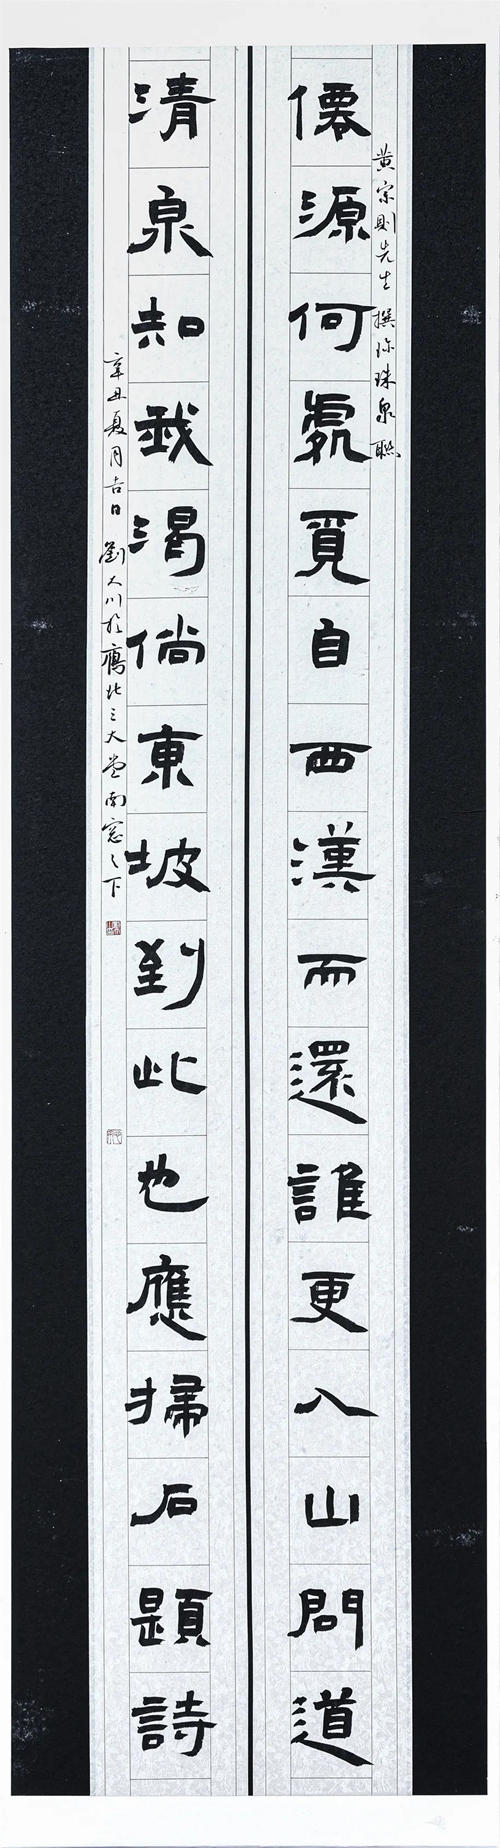 黄宗則先生 撰珍珠泉聯
僊源何處覓自西漢而還誰更入山問道
清泉知我渴倘東坡到此也應掃石題詩
辛丑夏月吉日 劉大川於鷹北之大堂南窓之下